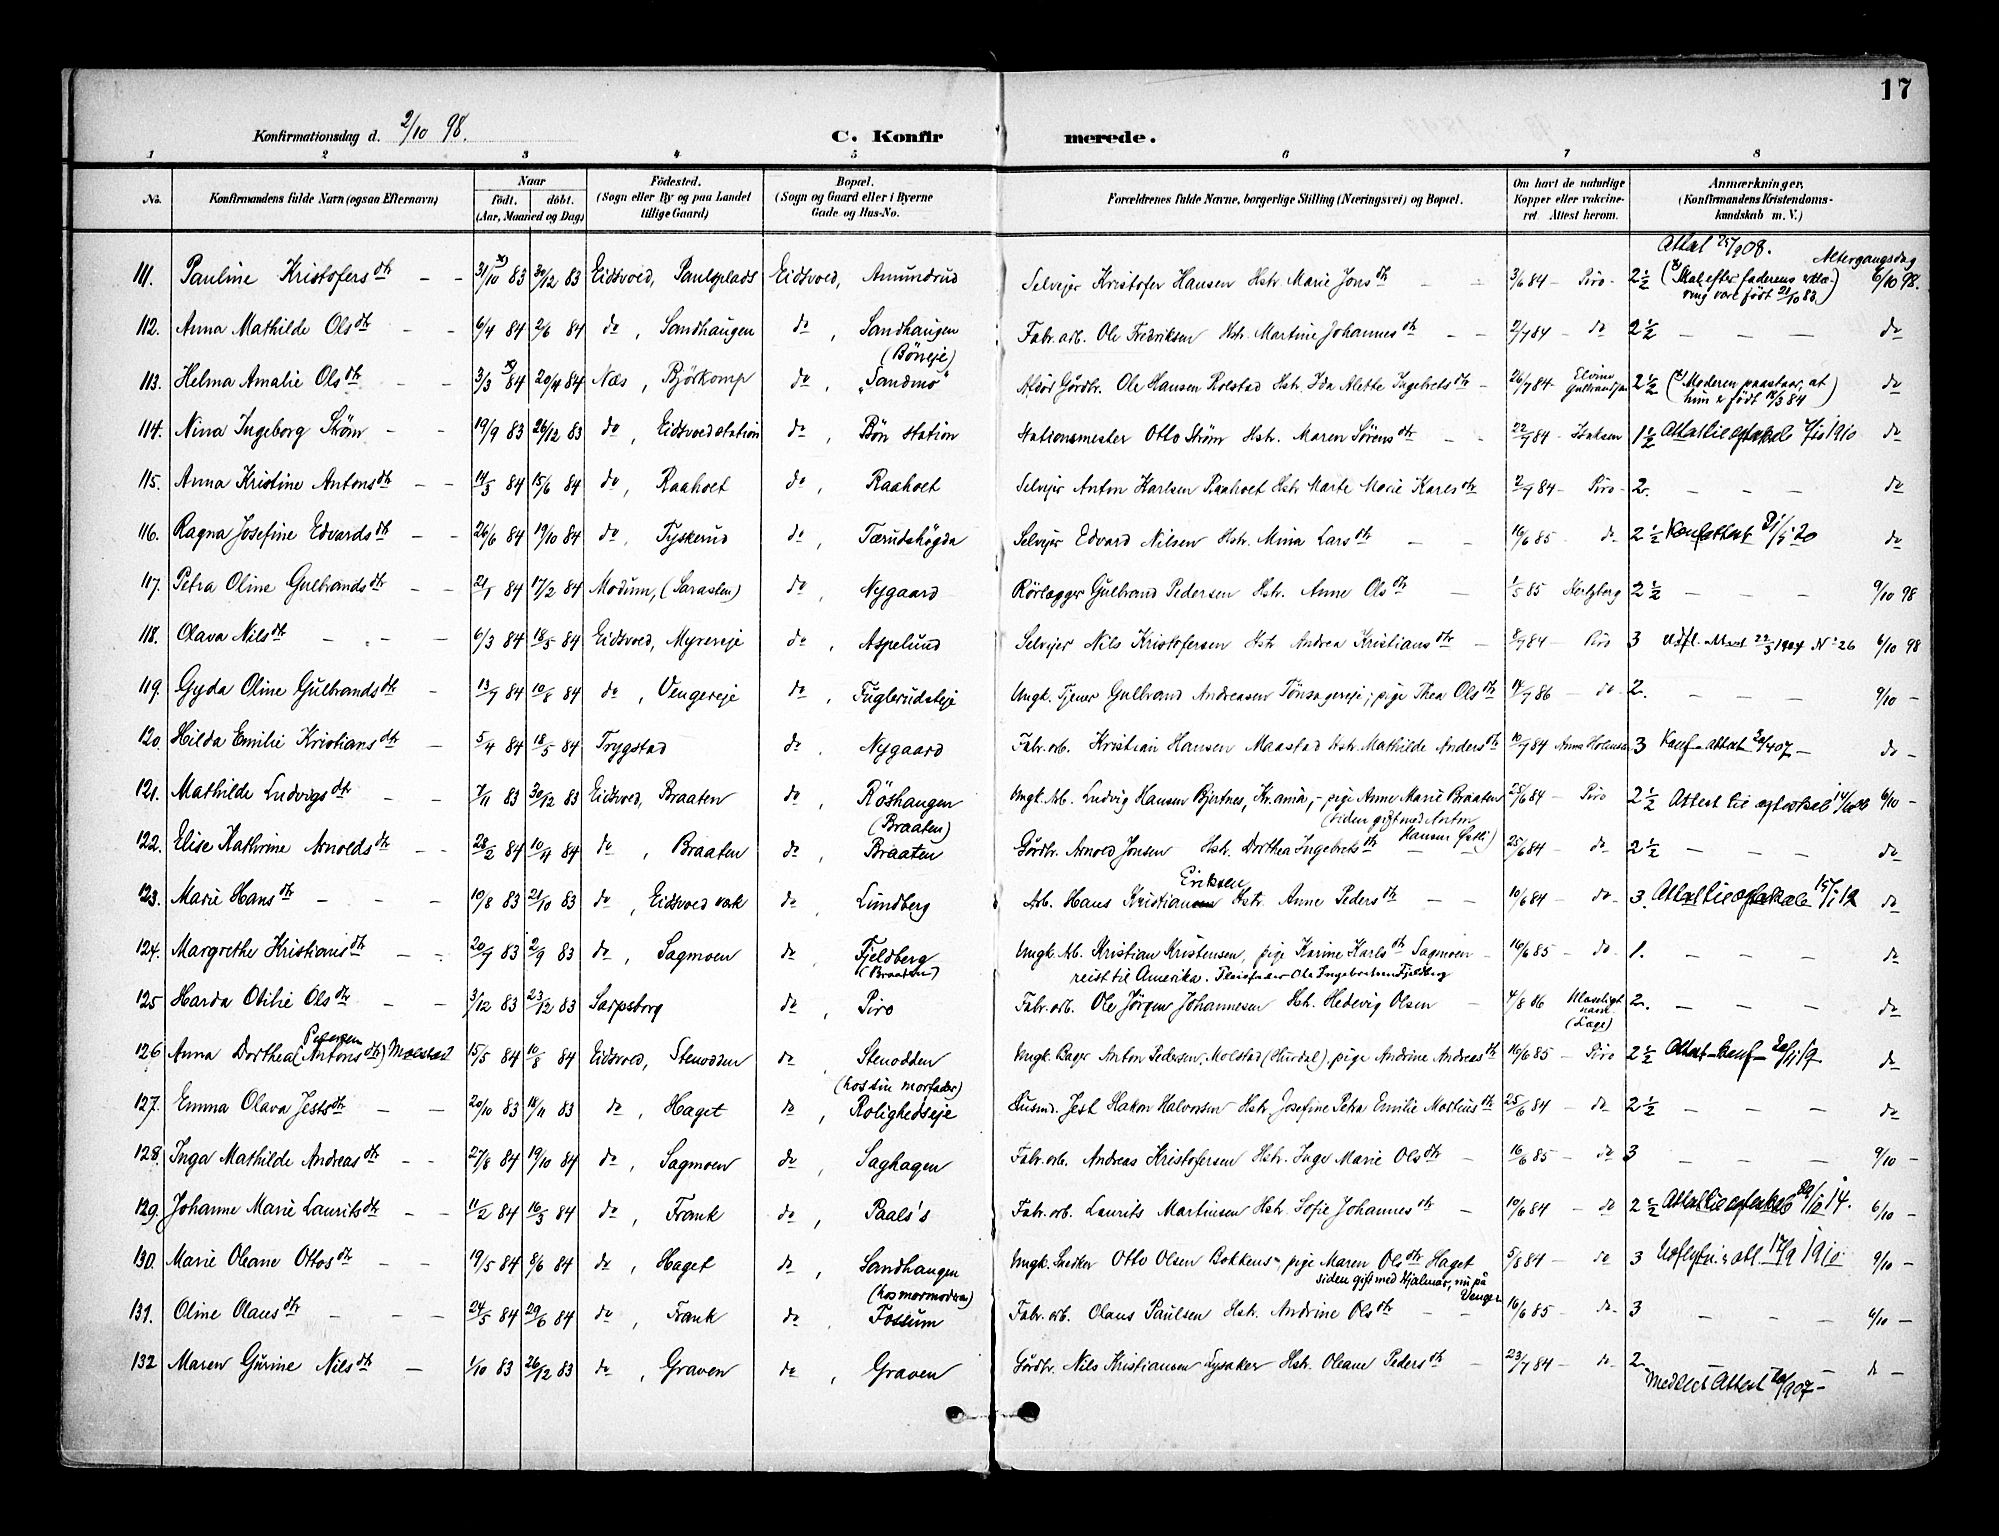 17
Konfirmationsdag d. 2/10 98.
C. Konfirmerede.
1 2 3 4 5 6 7 8
No. Konfirmandens fulde Navn (ogsaa Efternavn) Naar født. døbt. (Aar, Maaned og Dag) Fødested. (Sogn eller By og paa Landet tillige Gaard) Bopæl. (Sogn og Gaard eller i Byerne Gade og Hus-No. Forældrenes fulde Navne, borgerlige Stilling (Næringsvei) og Bopæl. Om havt de naturlige Kopper eller vakcineret. Attest herom. Anmærkninger. (Konfirmandens Kristendomskundskab m. V.)
Attest 25/9 08. Altergangsdag
111. Pauline Kristofersdtr — — 31/10 x) 83 30/12 83 Eidsvold, Paulsplads Eidsvold, Amundrud Selveier Kristofer Hansen Hstr Marie Jonsdtr 3/6 84 — Piro — 2½ (x) Skal efter faderens erklæring være født 21/10 83.) 6/10 98.
112. Anna Mathilde Olsdtr — — 6/4 84 2/6 84 do, Sandhaugen do, Sandhaugen (Böneje) Fabr. arb. Ole Fredriksen Hstr Martine Johannesdtr — — 2/7 84 — do 2½ — — — do
113. Helma Amalie Olsdtr — — 3/3 x) 84 20/4 84 Næs, Bjørkomp do, "Sandmo" Gårdbr. Ole Hansen Rolstad Hstr. Ida Alette Ingebretsdtr — 26/7 84 Elvine Gulbrandsen 2½ (x) Moderen paastaar, at hun er født 18/3 84) do
114. Nina Ingeborg Strøm — — 19/9 83 26/12 83 do, Eidsvold station do, Bøn station Stationsmester Otto Strøm Hstr. Maren Sørensdtr — — 22/7 84 — Isaksen 1½ Attest til egteskab 1910 do
115. Anna Kristine Antonsdtr — — 14/3 84 15/6 84 do, Raaholt do, Raaholt Selveier Anton Karlsen Raaholt Hstr Marte Marie Karlsdtr 2/7 84 — Piro — 2. — — — do
116. Ragna Josefine Edvardsdtr — — 26/6 84 19/10 84 do, Tyskerud do, Tærudshøgda Selveier Edvard Nilsen Hstr. Mina Larsdtr — — 16/6 85 do 2½ Konf attest 31/5 20 do
117. Petra Oline Gulbrandsdtr — — 21/1 84 17/2 84 Modum, (Sarasten) do, Nygaard Rörlægger Gulbrand Pedersen Hstr. Anne Olsdtr — 1/5 85 Hertzberg 2½ — — — 9/10 98
118. Olava Nilsdtr — — — 6/3 84 18/5 84 Eidsvold, Myrereje do, Aspelund Selveier Nils Kristofersen Hstr Andrea Kristiansdtr — 8/7 84 — Piro 3 Udfl. Attest 22/3 1904 No 26 6/10 98
119. Gyda Oline Gulbrandsdtr — 13/7 84 10/8 84 do, Vengereje do, Fuglerudseje Ungk. Tjener Gulbrand Andreasen Tönsagereje; pige Thea Olsdtr 14/7 86 — do — 2. — — — 9/10 —
120. Hilda Emilie Kristiansdtr — 5/4 84 18/5 84 Trygstad do, Nygaard Fabr. arb. Kristian Hansen Maastad Hstr. Mathilde Andersdtr 10/7 84 Anna Holmsen 3 Konf — attest 30/4 07 — do —
121. Mathilde Ludvigsdtr — 7/11 83 30/12 83 Eidsvold, Braaten do, Röshaugen (Braaten) Ungk. Arb. Ludvig Hansen Bjertnes, Kr.ania, — pige Anne Marie Braaten (siden gift med Anton Hansen) 28/6 84 — Piro 2½ Attest til egteskab 14/10 08 6/10 —
122. Elise Kathrine Arnoldsdtr — — 28/2 84 10/4 84 do, Braaten do, Braaten Gårdbr. Arnold Jonsen Hstr. Dorthea Ingebretsdtr 25/6 84 — do 2½ — — — do
123. Marie Hansdtr — — — 10/8 83 21/10 83 do, Eidsvold værk do, Lundberg Arb. Hans Kristiansen Eriksen Hstr. Anne Pedersdtr — — 10/6 84 — do — 3. Attest til egteskab 15/1 12 do
124. Margrethe Kristiansdtr — — 20/7 83 2/9 83 do, Sagmoen do, Fjeldberg (Braaten) Ungk. Arb. Kristian Kristensen, pige Karine Karlsdtr Sagmoen — reist til Amerika. Pleiefader Ole Ingebretsen Fjeldberg 16/6 85 — do 1. — — — do
125 Harda Otilie Olsdtr — — 3/12 83 23/12 83 Sarpsborg do, Piro Fabr. arb. Ole Jörgen Johannesen Hstr. Hedevig Olsen — 4/8 86 Ulæseligt navn (Læge) 2. — — — do
126 Anna Dorthea (Antonsdtr) Petersen Molstad 15/5 84 10/8 84 Eidsvold, Stenodden do, Stenodden (hos sin morfader) Ungk. Bager Anton Pedersen Molstad (Hurdal), pige Andrine Andreasdtr 16/6 85 — Piro 2½ Attest — konf — do
127. Emma Olava Jestsdtr — — 20/10 83 18/11 83 do, Haget do, Rolighedseje Husmd. Jest Hakon Halvorsen Hstr. Josefine Petra Emilie Mortiusdtr 25/6 84 — do 2½ — — — do
128. Inga Mathilde Andreasdtr — — 27/8 84 19/10 84 do, Sagmoen do, Saghagen Fabr. arb. Andreas Kristofersen Hstr. Inge Marie Olsdtr — 16/6 85 — do 3 — — — 9/10 —
129. Johanne Marie Lauritsdtr — — 11/2 84 16/3 84 do, Frank do, Paals's Fabr. arb. Laurits Martinsen Hstr. Sofie Johannesdtr — 10/6 84 — do 2½ Attest til egteskab 14. 6/10 —
130. Marie Oleane Ottosdtr — — 19/5 84 8/6 84 do, Haget do, Sandhaugen (hos mormodren) Ungk. Snedker Otto Olsen Bokkens — pige Maren Olsdtr Haget siden gift med Hjalmar, nu på Venger 5/8 84 — do 3 Udflytn. att. 17/9 1910 9/10 —
131. Oline Olausdtr — — — 24/5 84 29/6 84 do, Frank do, Fossum Fabr. arb. Olaus Paulsen Hstr. Andrine Olsdtr — — 16/6 85 — do — 3 — — — 6/10 —
132 Maren Gurine Nilsdtr — 1/10 83 26/12 83 do, Graven do, Graven Gårdbr. Nils Kristiansen Lysaker Hstr. Oleane Pedersdtr — 23/7 84 — do — 2. — — — do —
Meddelt Attest 907 —